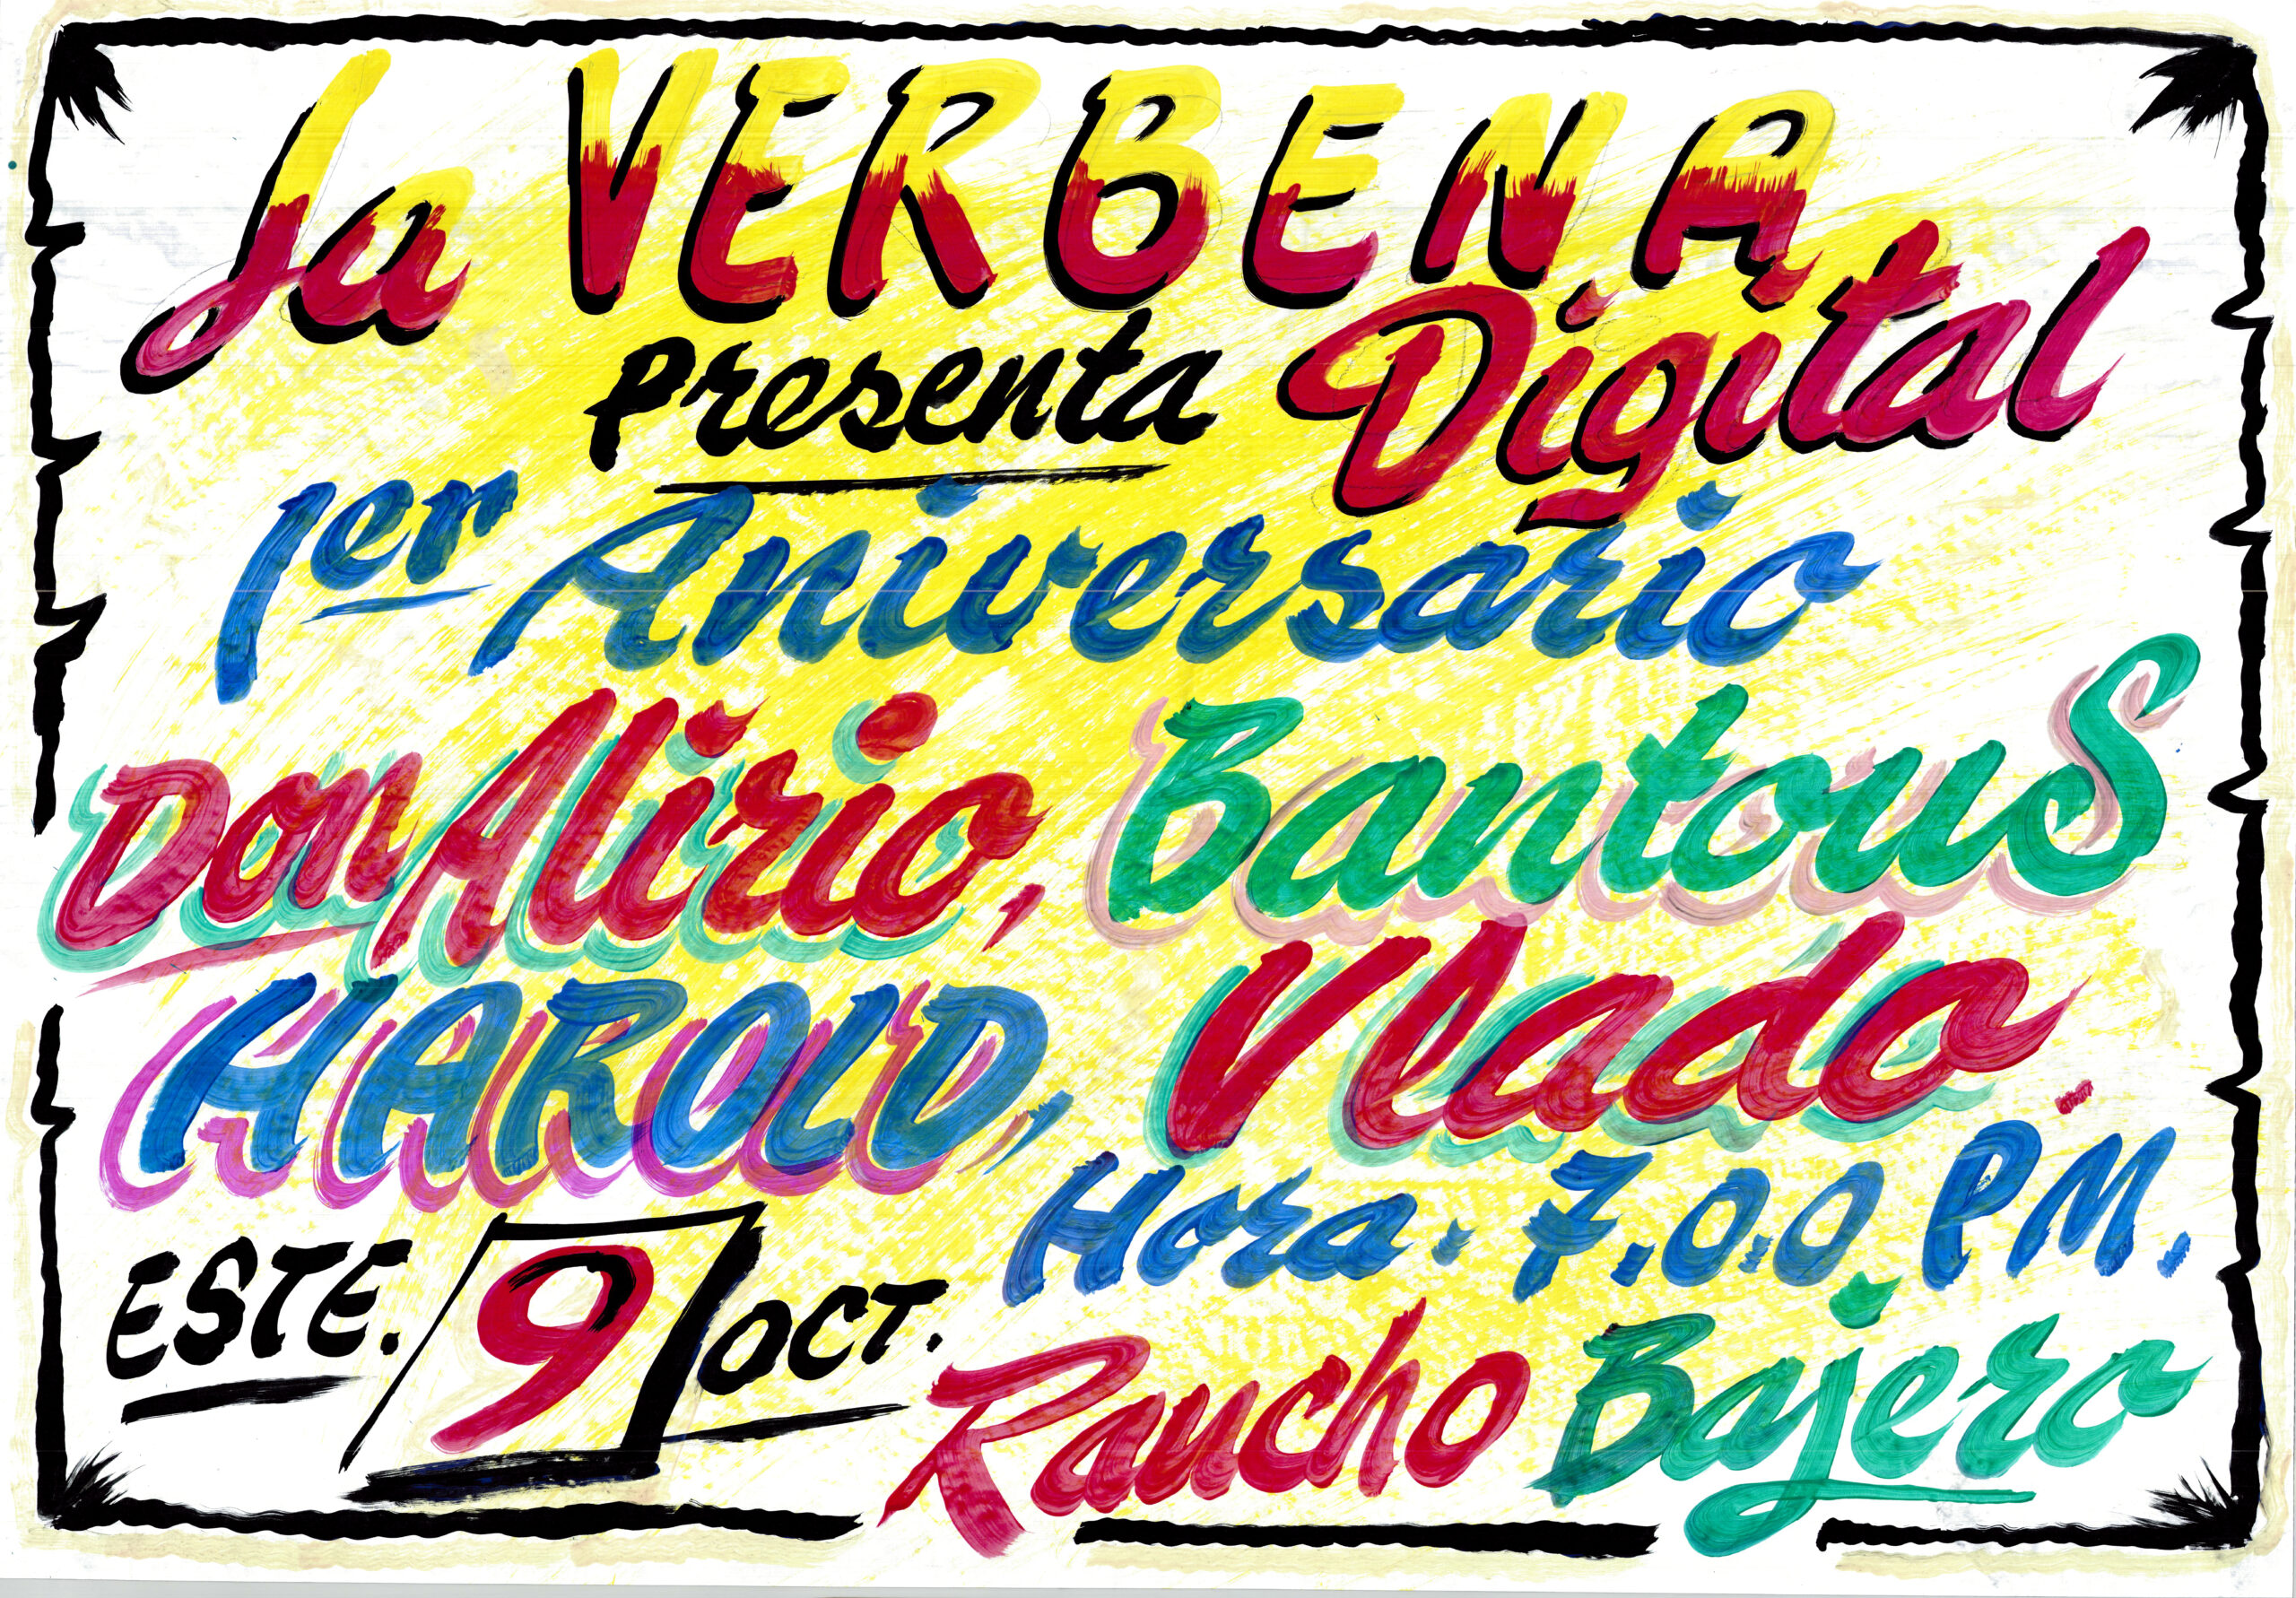 La VERBENA
Presenta Digital
1er Aniversario
Don Alirio, Bantous
HAROLD, Vlado.
Hora. 7.0.0 PM.
ESTE. 9 OCT.
Rancho Bajero